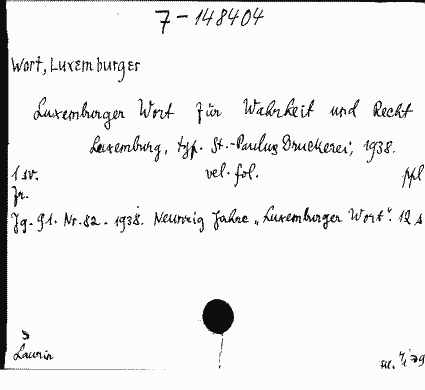 7-148404
Wort, Luxemburger
Luxemburger Wort für Wahrheit und Recht
Luxemburg, typ. St.-Paulus Druckerei, 1938.
1 sv. vel. fol. ppl
Jg. 91. Nr. 82. 1938. Neunzig Jahre „Luxemburger Wort". 12 s
Laurin